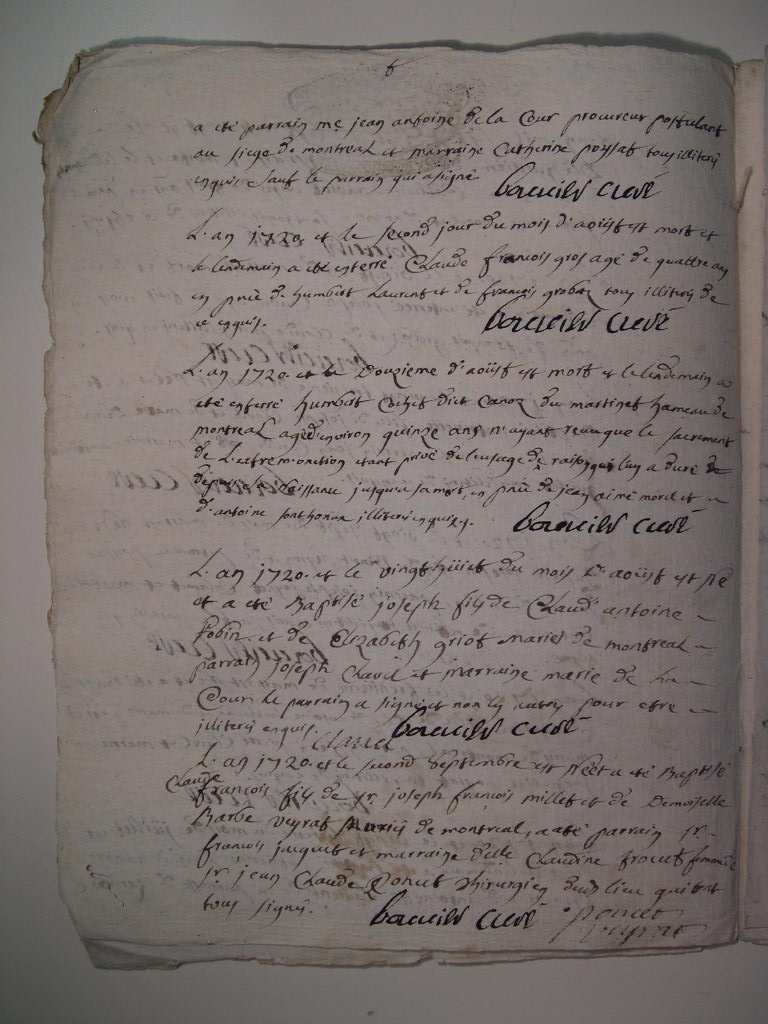 6
a eté parrain me jean antoine de la Cour procureur postulant
au siege de montreal et marraine Catherine poysat tous illiterés
enquis Sauf le parrain qui a signé curé
L'an 1720 et le second jour du mois d'aoüst est mort et
le lendemain a eté enterré Claude francois gros agé de quattre ans
en pnce de humbert Laurent et de francois grobas tous illiterés de
ce enquis. curé
L'an 1720 et le douzieme d'aoüst est mort et le lendemain a
eté enterré humbert Cochet dict Canoz du martinet hameau de
montreal agé d'environ quinze ans n'ayant receu que le sacrement
de L'extremonction etant privé de l'usage de raison qui luy a duré
depuis sa naissance jusqu'a sa mort, en pnce de jean aimé morel et
d'antoine fonthonax illiterés enquis. curé
L'an 1720 et le vingt hüict du mois d'aoüst est né
et a eté Baptisé joseph fils de Claud antoine
robin et de Elizabeth griot Mariés de montreal
parrain joseph Clavel et marraine marie de la
Cour Le parrain a signé et non les autres pour etre
illiterés enquis. curé
Clavel
L'an 1720 et le second Septembre est né et a eté Baptisé
Claude
francois fils de sr joseph francois millet et de Demoiselle
Barbe veyrat Mariés de montreal, a eté parrain sr
francois jacquet et marraine dlle Claudine femme de
sr jean Claude Poncet Chirurgien dud lieu qui ont
tous signés. curé Poncet
veyrat